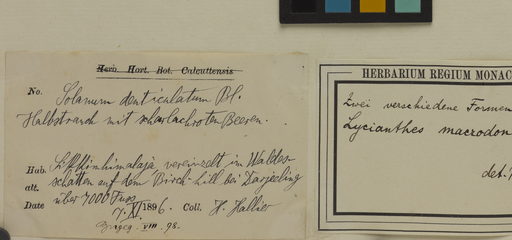 Herb. Hort. Bot. Calcuttensis
No. Solanum denticulatum Bl.
Halbstrauch mit scharlachroten Beeren.
Hab. Sikkimhimalaja vereinzelt im Waldes-
schatten auf dem Birch-hill bei Darjeeling
alt. über 7000 Fuss
Date 7. XI 1896. Coll. H. Hallier
VIII. 98.
HERBARIUM REGIUM MONAC
Zwei verschiedene Formen
Lycianthes macrodon
det.